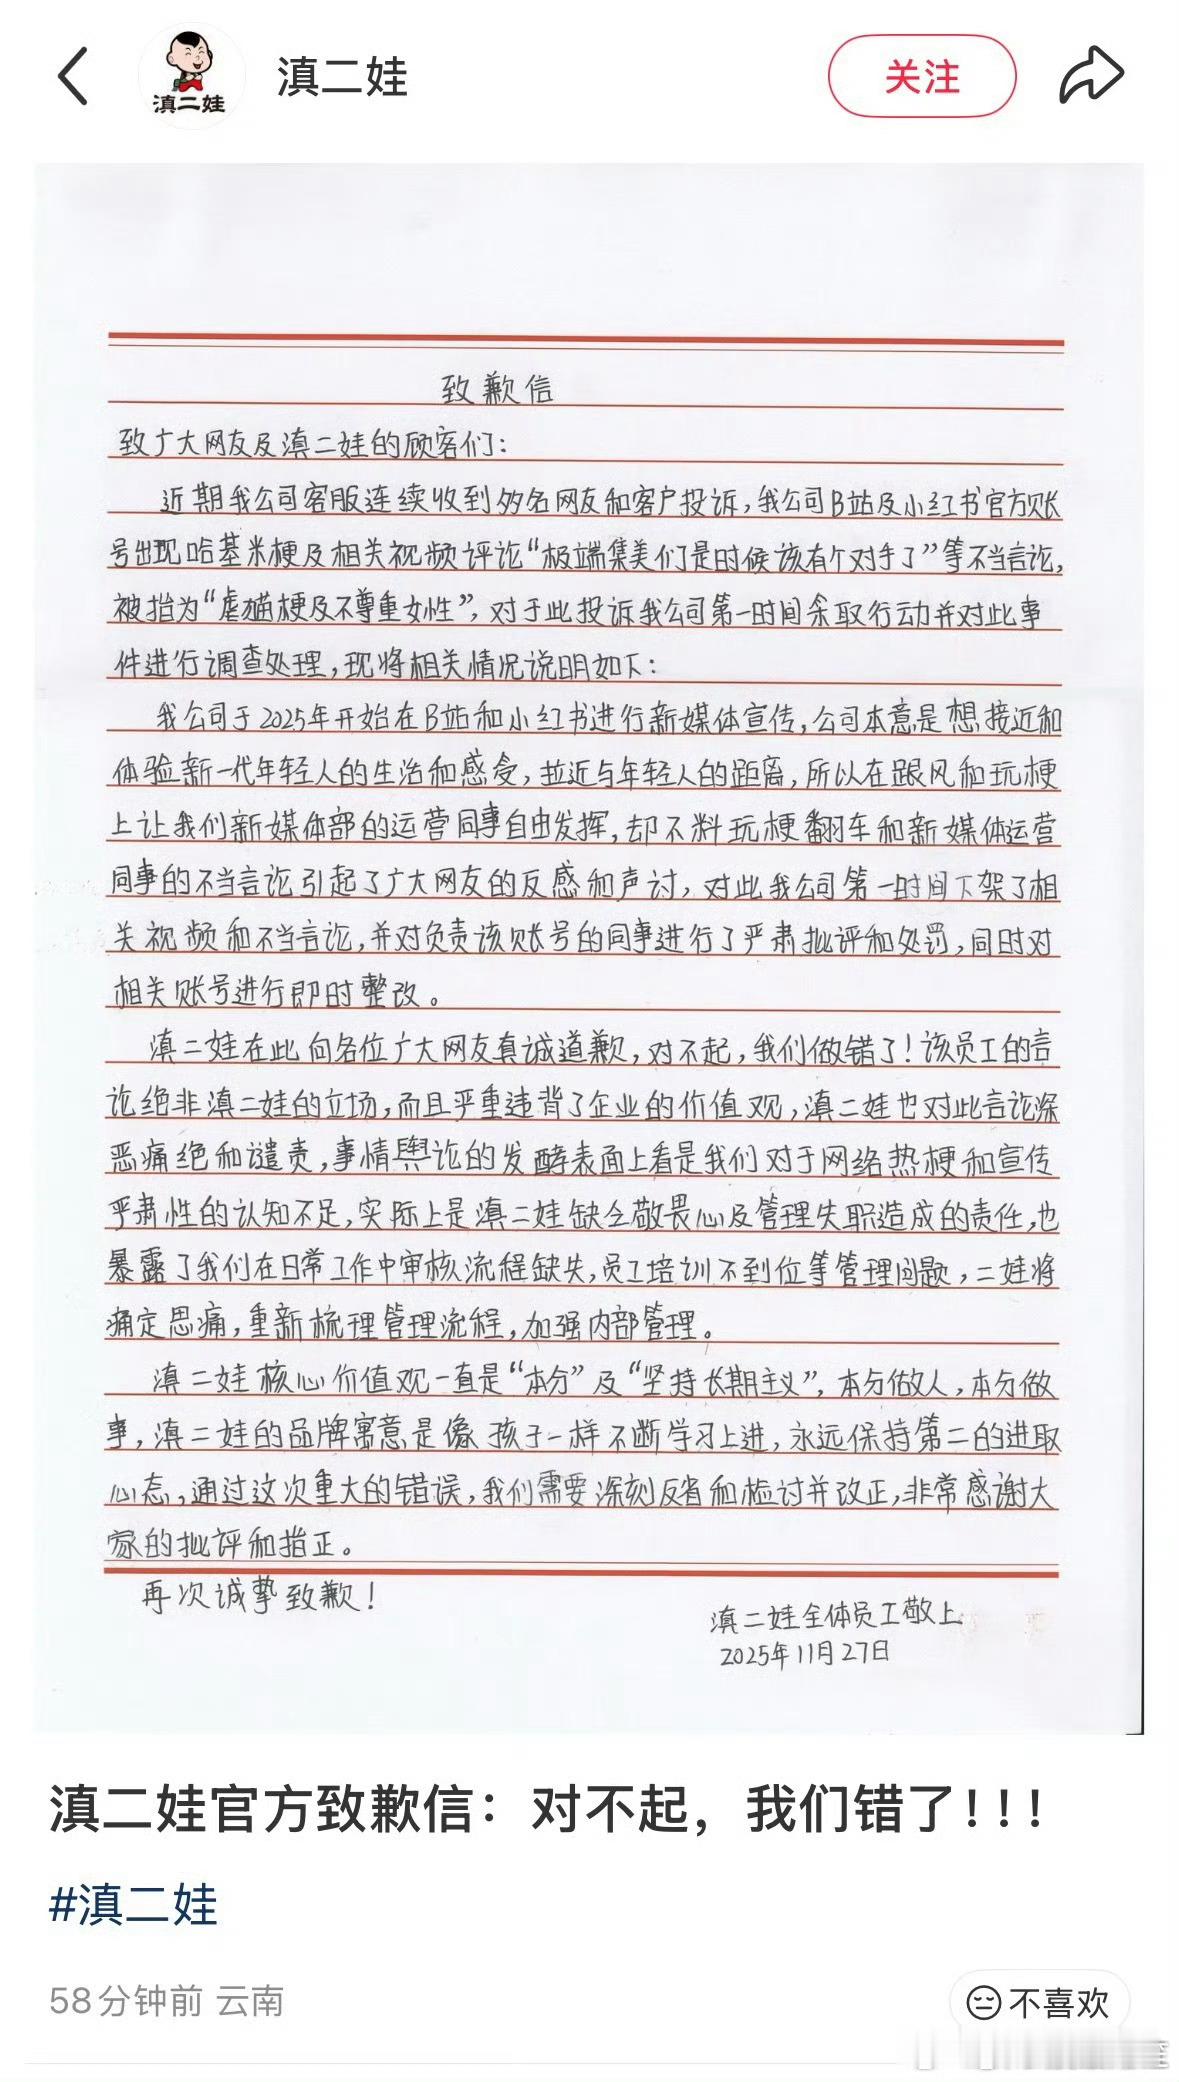 滇二娃
滇二娃
关注
致歉信
致广大网友及滇二娃的顾客们：
近期我公司客服连续收到多名网友和客户投诉，我公司B站及小红书官方账
号出现哈基米梗及相关视频评论“极端集美们是时候该有个对手了”等不当言论，
被指为“虐猫梗及不尊重女性”，对于此投诉我公司第一时间采取行动并对此事
件进行调查处理，现将相关情况说明如下：
我公司于2025年开始在B站和小红书进行新媒体宣传，公司本意是想接近和
体验新一代年轻人的生活和感受，拉近与年轻人的距离，所以在跟风和玩梗
上让我们新媒体部的运营同事自由发挥，却不料玩梗翻车和新媒体运营
同事的不当言论引起了广大网友的反感和声讨，对此我公司第一时间下架了相
关视频和不当言论，并对负责该账号的同事进行了严肃批评和处罚，同时对
相关账号进行即时整改。
滇二娃在此向各位广大网友真诚道歉，对不起，我们做错了！该员工的言
论绝非滇二娃的立场，而且严重违背了企业的价值观，滇二娃也对此言论深
恶痛绝和谴责，事情舆论的发酵表面上看是我们对于网络热梗和宣传
严肃性的认知不足，实际上是滇二娃缺乏敬畏心及管理失职造成的责任，也
暴露了我们在日常工作中审核流程缺失，员工培训不到位等管理问题，二娃将
痛定思痛，重新梳理管理流程，加强内部管理。
滇二娃核心价值观一直是“本分”及“坚持长期主义”，本分做人，本分做
事，滇二娃的品牌寓意是像孩子一样不断学习上进，永远保持第二的进取
心态，通过这次重大的错误，我们需要深刻反省和检讨并改正，非常感谢大
家的批评和指正。
再次诚挚致歉！
滇二娃全体员工敬上
2025年11月27日
滇二娃官方致歉信：对不起，我们错了！！！
#滇二娃
58分钟前 云南
不喜欢